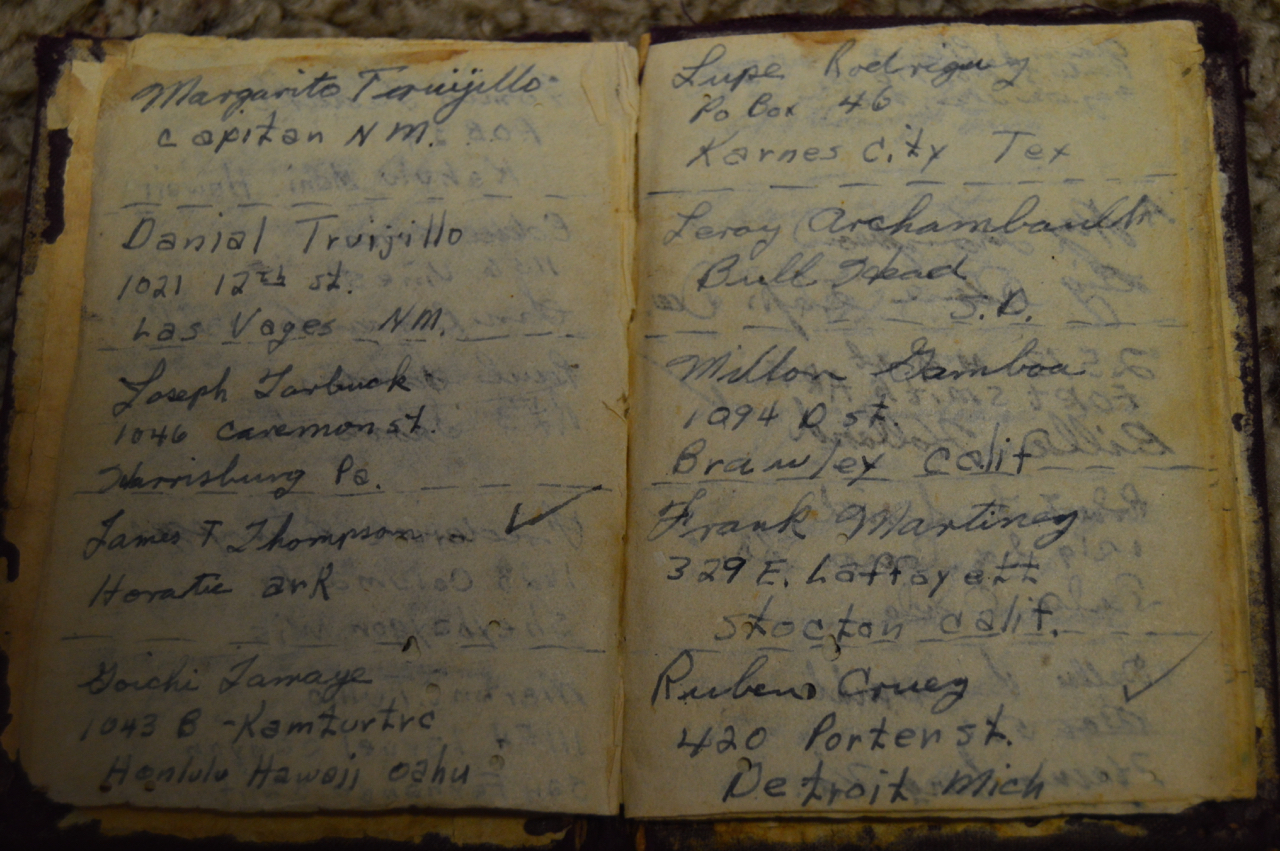 Margarito Terujillo
Capitan N M.
Danial Truijillo
1021 12th st.
Las Vages NM.
Joseph Tarbuck
1046 Caremon st.
Harrisburg Pa.
James T Thompson
Horatic ark
Goichi Tamaye
1043 B - Kamturtrc
Honlulu Hawaii Oahu
Lupe Rodriguez
Po Box 46
Karnes City Tex
Leroy Archambault
Bull Head
S.D.
Milton Gamboa
1094 D st.
Brawley Calif
Frank Martinez
329 E. Laffayett
Stockton Calif.
Ruben Cruez
420 Porter st.
Detroit Mich